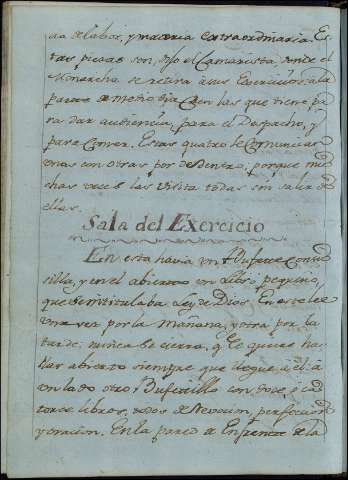 da de labor, y materia extraordinaria. Es
tas piesas son, dijo el Camarista, donde el
Monarcha se retira à sus Exercicios a la
de medio dia en las que tiene pa
ra dar audiencia, para el Despacho, y
para Comer. Estas quatro se Comunican
unas con otras por de dentro, porque mu
chas vezes las visita todas sin salir de
ellas.
Sala del Exercicio
En esta havia un Bufete con su
silla, y en el abierto un Libro pequeño,
que se intitulaba Ley de Dios. En este lee
una vez por la mañana, y otra por la
tarde: nunca se cierra, q.e quiere ha
llar abierto siempre que llegue à el: à
un lado otro Bufetillo con doce, ò ca
torce libros, todos de devocion, perfeccion
y oracion. En la pared de enfrente de la